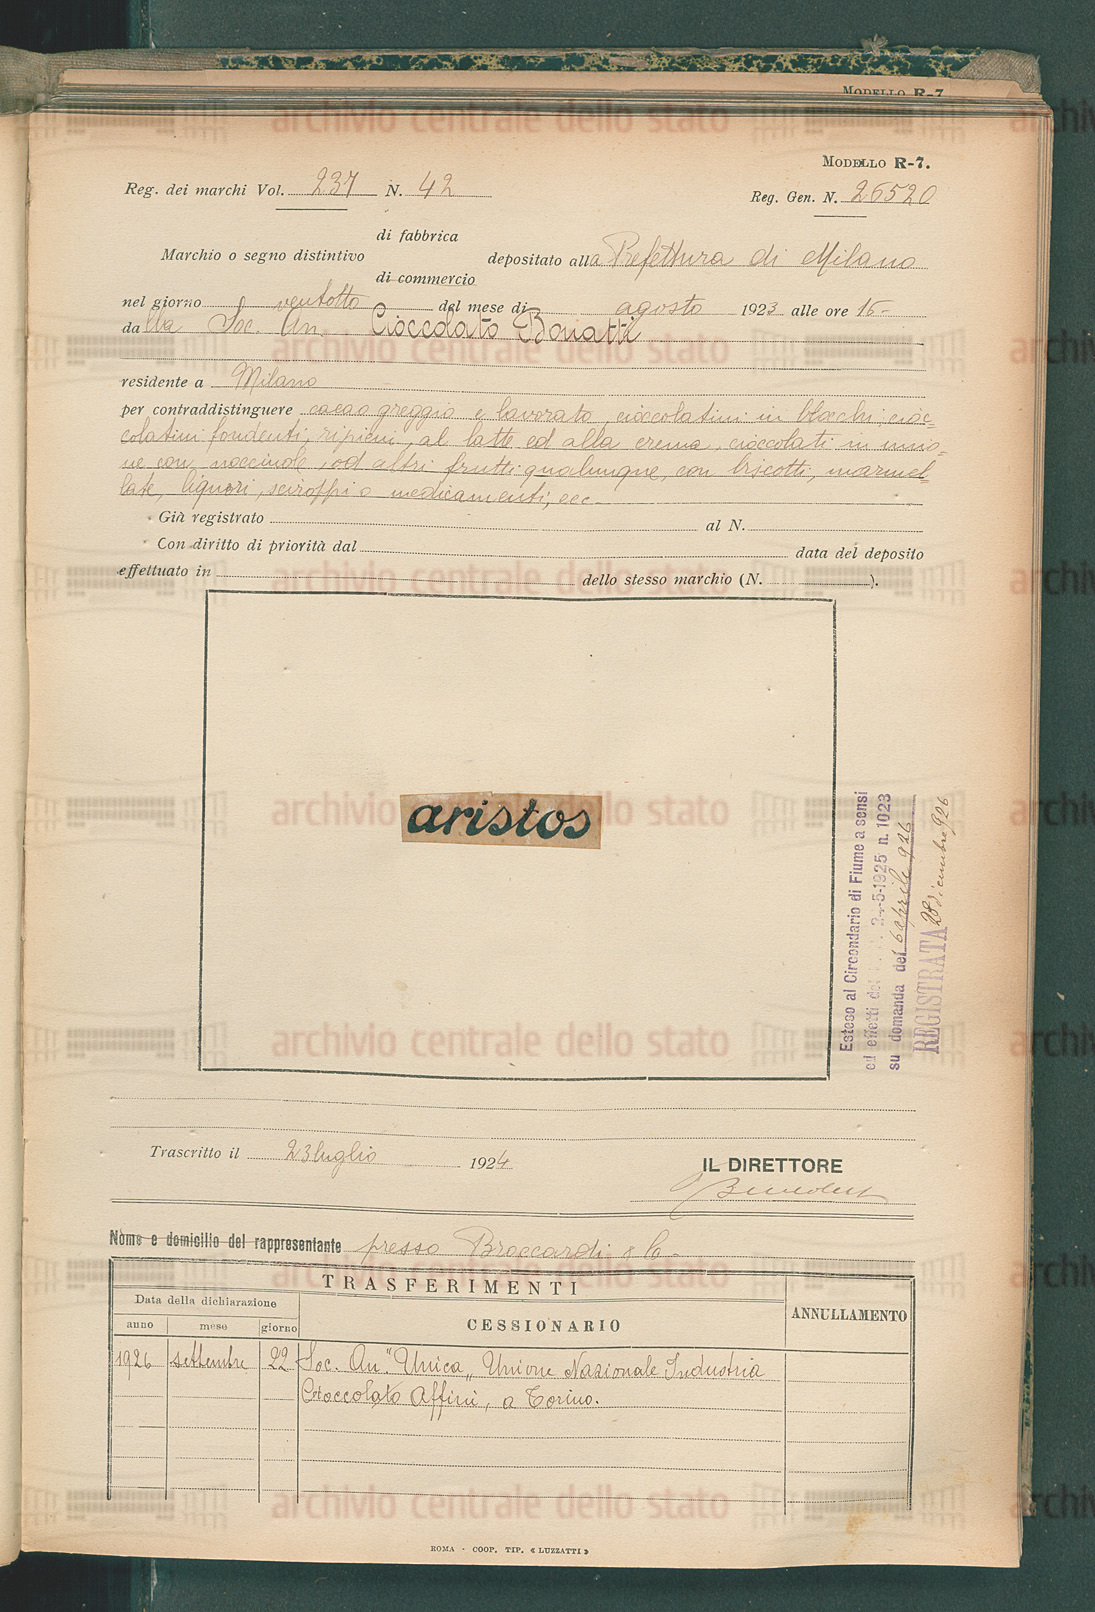 MODELLO R-7
MODELLO R-7.
Reg. dei marchi Vol. 237 N. 42
Reg. Gen. N. 26520
di fabbrica
Marchio o segno distintivo depositato alla Prefettura di Milano
di commercio
nel giorno ventotto del mese di agosto 1923 alle ore 16-
dalla Soc. An. Cioccolato Bonatti
residente a Milano
per contraddistinguere cacao greggio e lavorato, cioccolatini in blocchi, cioc=
colatini fondenti, ripieni, al latte ed alla crema, cioccolati in unio=
ne con nocciuole, od altri frutti qualunque, con biscotti, marmel=
late, liquori, sciroppi o medicamenti, ecc.
Già registrato al N.
Con diritto di priorità dal data del deposito
effettuato in dello stesso marchio (N. ).
aristos
Esteso al Circondario di Fiume a sensi
ed effetti del 5-1925 n. 1023
su domanda del 6 aprile 926
REGISTRATA 28 dicembre 926
Trascritto il 23 luglio 1924
IL DIRETTORE
Nome e domicilio del rappresentante presso Broccardi & Co-
TRASFERIMENTI
Data della dichiarazione
anno mese giorno
CESSIONARIO
ANNULLAMENTO
1926 settembre 22 Soc. An. "Unica" Unione Nazionale Industria
Cioccolato Affini, a Torino.
ROMA - COOP. TIP. « LUZZATTI »
archivio centrale dello stato